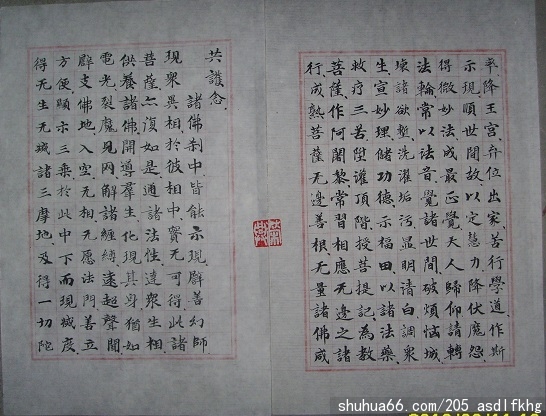 率降王宮弃位出家苦行學道作斯
示現順世間故以定慧力降伏魔怨
得微妙法成最正覺天人歸仰請轉
法輪常以法音覺諸世間破煩惱城
壞諸欲塹洗濯垢污顯明清白調眾
生宣妙理儲功德示福田以諸法藥
救疗三苦陞灌頂階授菩提記為教
菩薩作阿闍黎常習相應无邊之諸
行成熟菩薩无邊善根无量諸佛咸
共護念
諸佛剎中皆能示現譬善幻師
現眾異相於彼相中實无可得此諸
菩薩亦復如是通諸法性達眾生相
供養諸佛開導群生化現其身猶如
電光裂魔見网解諸纏縛遠超聲聞
辟支佛地入空无相无愿法門善立
方便顯示三乘於此中下而現滅度
得无生无滅諸三摩地及得一切陀
shuhua66.com/205_asdlfkhg